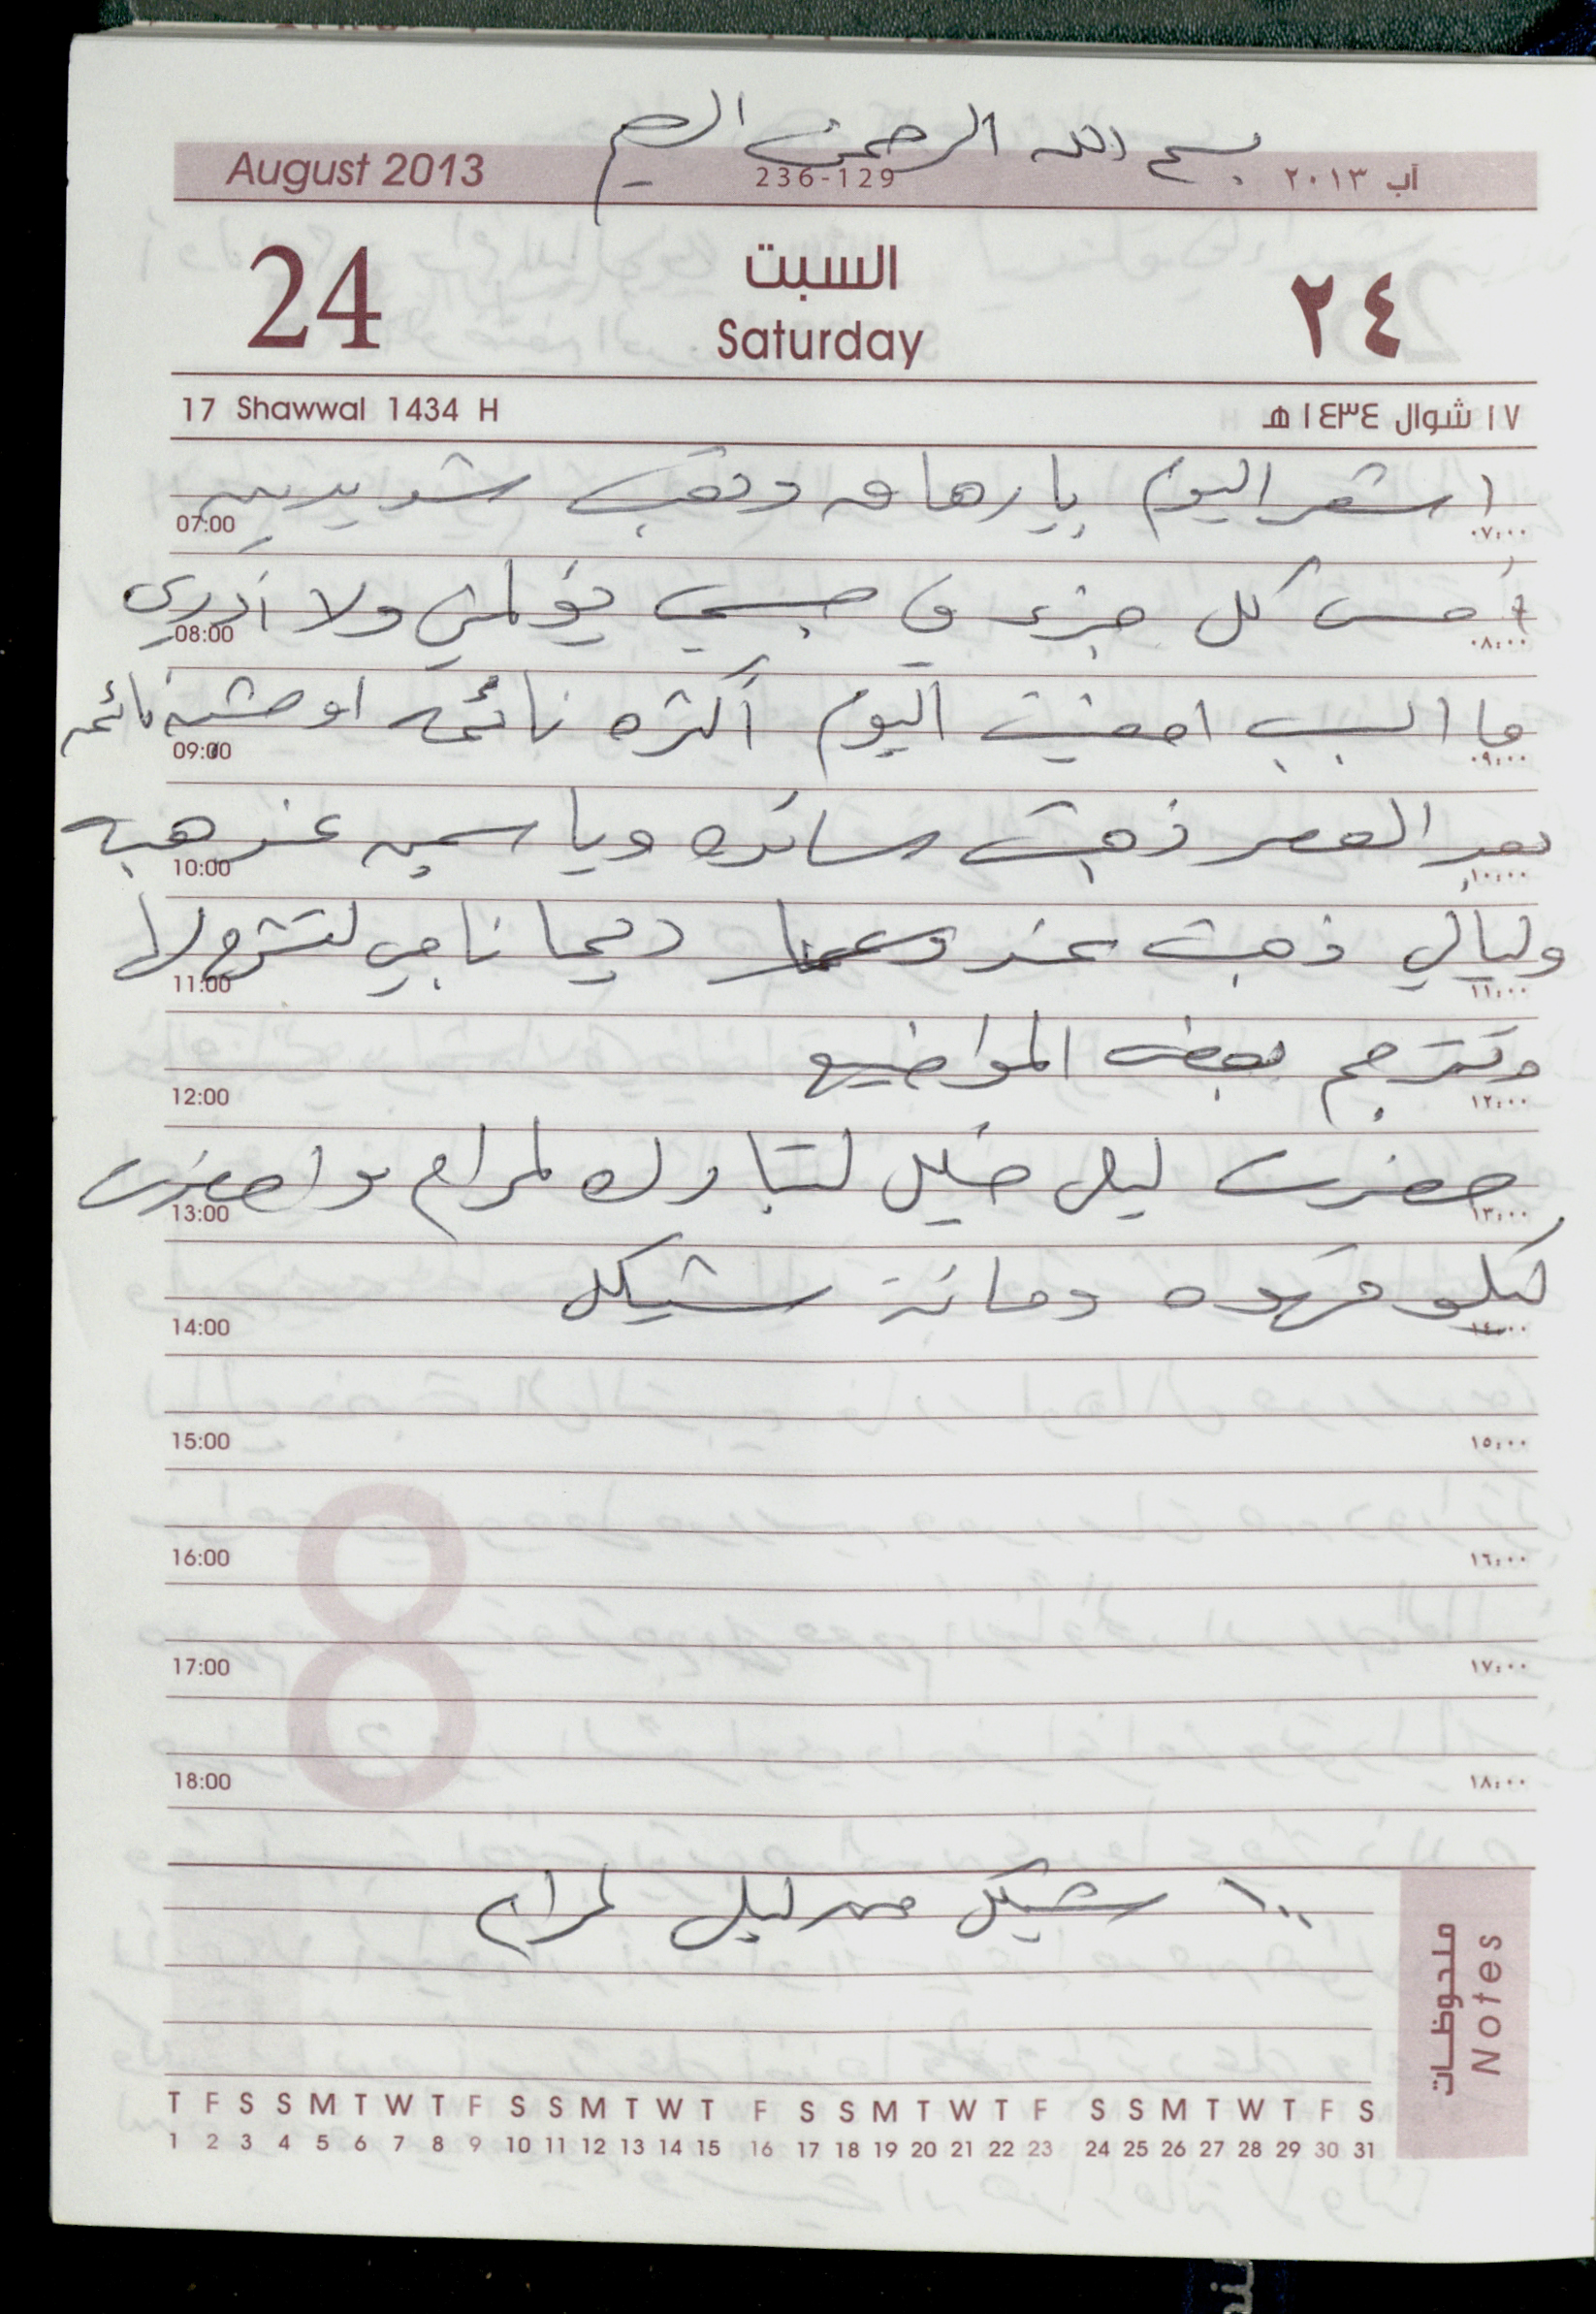 بسم الله الرحمن الرحيم
August 2013 236-129 آب ٢٠١٣
24 السبت ٢٤
Saturday
17 Shawwal 1434 H ١٧ شوال ١٤٣٤ هـ
اشعر اليوم بارهاق وتعب شديدين
07:00 ٠٧:٠٠
أحس كل جزء في جسمي يؤلمني ولا أدري
08:00 ٠٨:٠٠
ما السبب امضيت اليوم أكثره نائمه او مشبه نائمه
09:00 ٠٩:٠٠
بعد العصر ذهبت سائده وياسمين عند هبه
10:00 ١٠:٠٠
وليالي ذهبت عند ديما ناجي لتشرح لها
11:00 ١١:٠٠
وتترجم بعض المواضيع
12:00 ١٢:٠٠
حضرت ليلى خليل لتبارك لمرام واحضرت
13:00 ١٣:٠٠
كيلو قهوه ومائة شيكل
14:00 ١٤:٠٠
15:00 ١٥:٠٠
16:00 ١٦:٠٠
17:00 ١٧:٠٠
18:00 ١٨:٠٠
8
١٠٠ شيكل من ليلى لمرام
ملحوظات
Notes
T F S S M T W T F S S M T W T F S S M T W T F S S M T W T F S
1 2 3 4 5 6 7 8 9 10 11 12 13 14 15 16 17 18 19 20 21 22 23 24 25 26 27 28 29 30 31